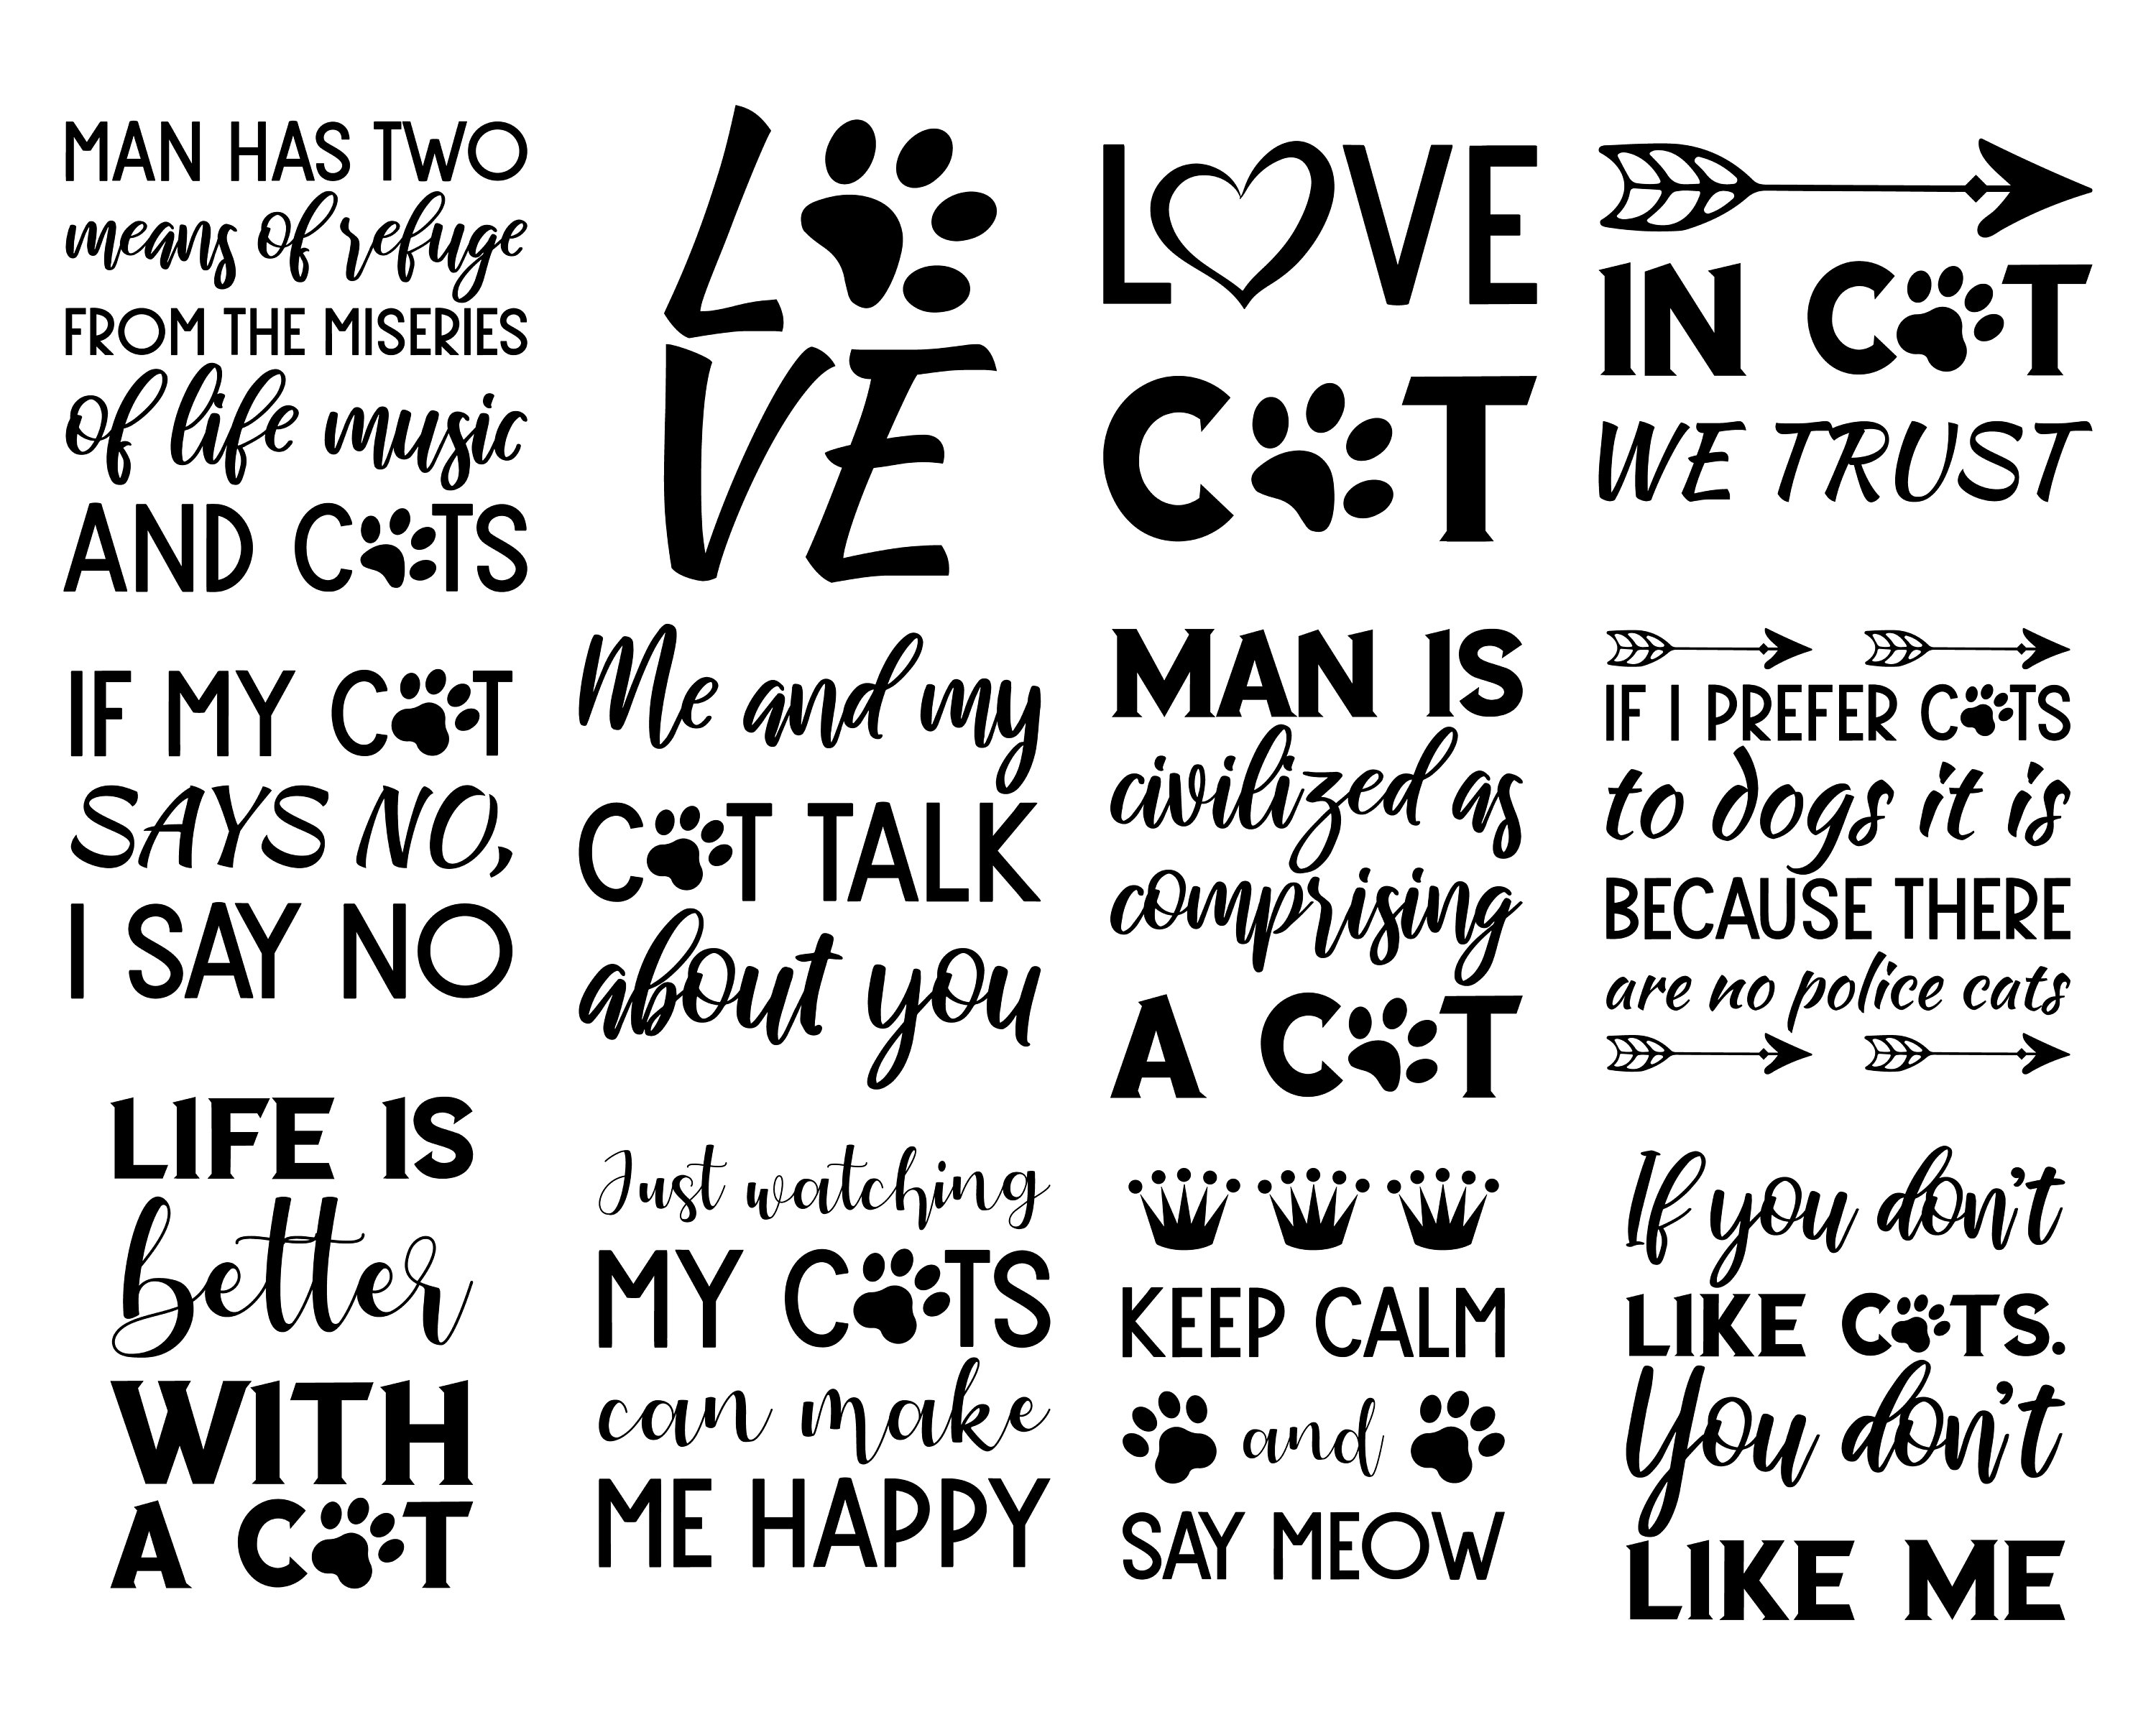 MAN HAS TWO
means of refuge
FROM THE MISERIES
of life music
AND CATS
LO
VE
LOVE
CAT
IN CAT
WE TRUST
IF MY CAT
SAYS NO,
I SAY NO
Me and my
CAT TALK
about you
MAN IS
civilized as
comprising
A CAT
IF I PREFER CATS
to dogs it is
BECAUSE THERE
are no police cats
LIFE IS
better
WITH
A CAT
Just watching
MY CATS
can make
ME HAPPY
KEEP CALM
and
SAY MEOW
If you don't
LIKE CATS.
You don't
LIKE ME